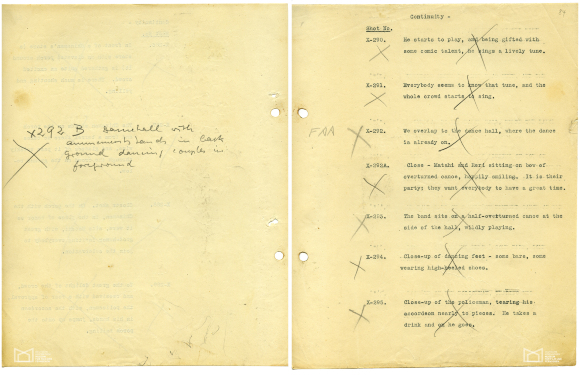 x292 B Dancehall with
amusements bands in back
ground dancing couples in
foreground
Continuity -
Shot No.
X-290. He starts to play, and being gifted with
some comic talent, he sings a lively tune.
X-291. Everybody seems to know that tune, and the
whole crowd starts to sing.
FAA
X-292. We overlap to the dance hall, where the dance
is already on.
X-292A. Close - Matahi and Reri sitting on bow of
overturned canoe, happily smiling. It is their
party; they want everybody to have a great time.
X-293. The band sits on a half-overturned canoe at the
side of the hall, wildly playing.
X-294. Close-up of dancing feet - some bare, some
wearing high-heeled shoes.
X-295. Close-up of the policeman, tearing his
accordeon nearly to pieces. He takes a
drink and on he goes.